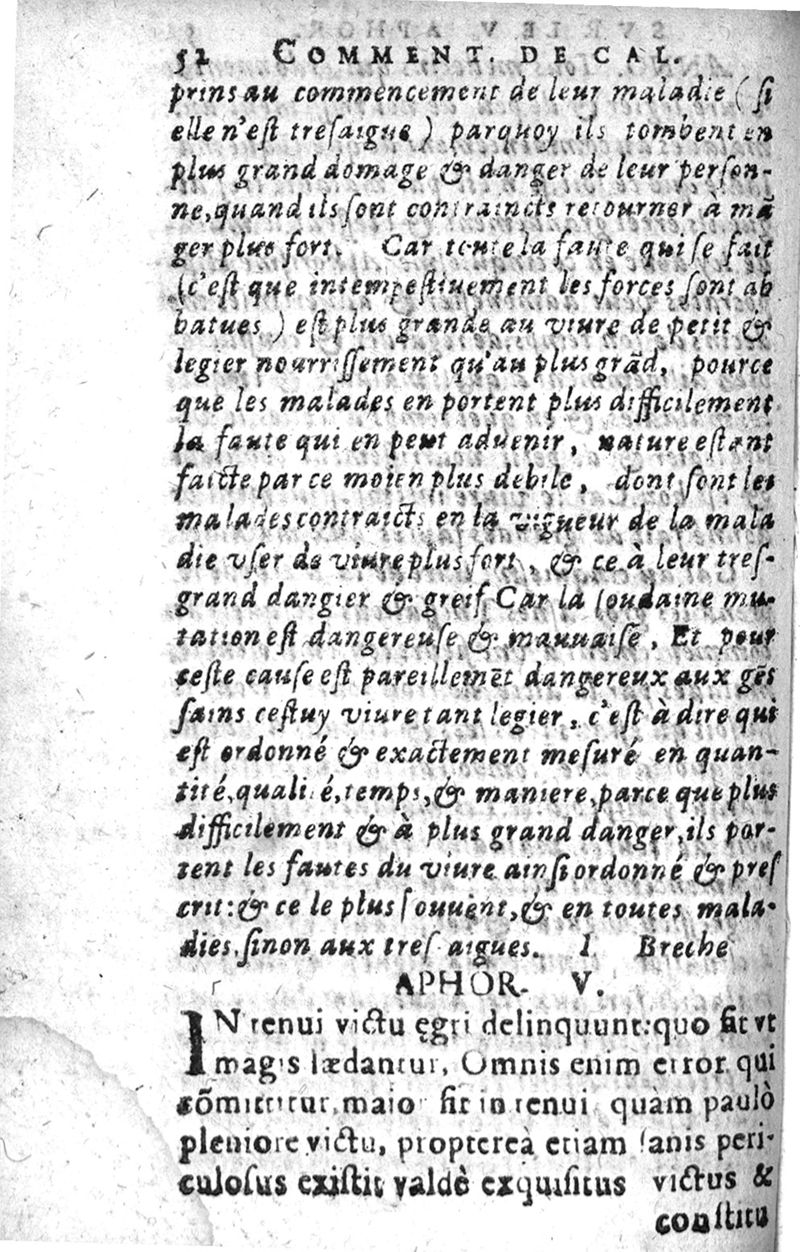 52 COMMENT. DE CAL.
prins au commencement de leur maladie (si
elle n'est tresaigue) parquoy ils tombent en
plus grand domage & danger de leur person-
ne, quand ils sont contraincts retourner à mã
ger plus fort. Car toute la faute qui se fait
(c'est que intempestiuement les forces sont ab
batues) est plus grande au viure de petit &
legier nourrissement qu'au plus grãd, pource
que les malades en portent plus difficilement
la faute qui en peut aduenir, nature estant
faicte par ce moien plus debile, dont sont les
malades contraicts en la vigueur de la mala
die vser de viure plus fort, & ce à leur tres-
grand dangier & greif Car la soudaine mu-
tation est dangereuse & mauuaise, Et pour
ceste cause est pareillemẽt dangereux aux gẽs
sains cestuy viure tant legier, c'est à dire qui
est ordonné & exactement mesuré en quan-
tité, qualité, temps, & maniere, parce que plus
difficilement & à plus grand danger, ils por-
tent les fautes du viure ainsi ordonné & pres
crit: & ce le plus souuent, & en toutes mala-
dies, sinon aux tres aigues. I Breche
APHOR. V.
IN tenui victu ęgri delinquunt: quo fit vt
magis lædantur, Omnis enim error qui
cõmittitur, maior fit in tenui quàm paulò
pleniore victu, propterea etiam sanis peri-
culosus existit valdè exquisitus victus &
constitu